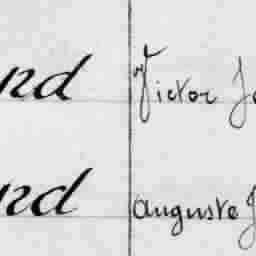 nd Victor J
nd auguste J